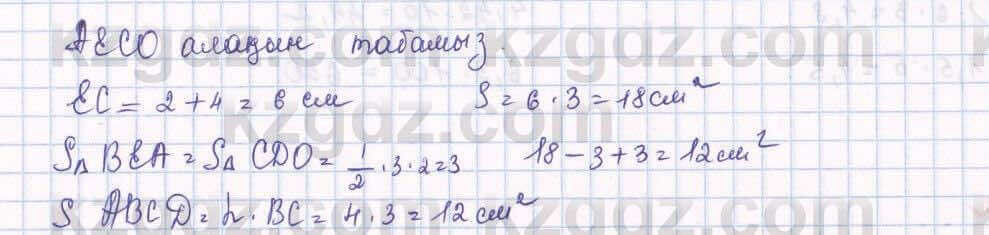 AECO алаңын табамыз.
EC = 2 + 4 = 6 см S = 6 · 3 = 18 см²
S△ BEA = S△ CDO = 1/2 · 3 · 2 = 3 18 - 3 + 3 = 12 см²
S ABCD = h · BC = 4 · 3 = 12 см²